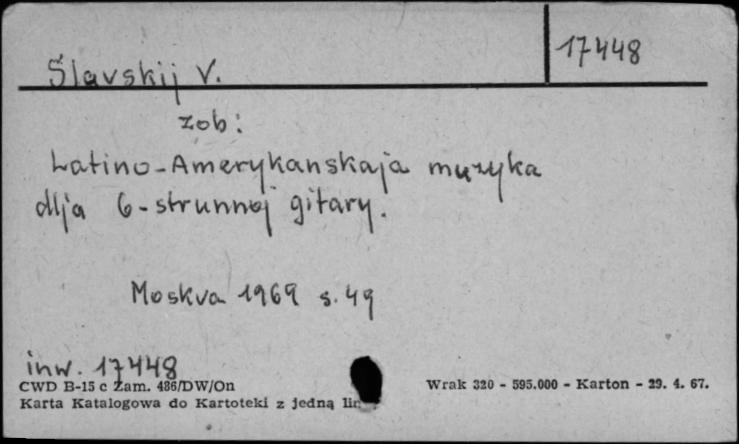 Slavskij V.
17448
zob:
Latino-Amerykanskaja muzyka
dlja 6-strunnoj gitary.
Moskva 1969 s. 49
inw. 17448
CWD B-15 c Zam. 486/DW/On
Wrak 320 - 595.000 - Karton - 29. 4. 67.
Karta Katalogowa do Kartoteki z jedną